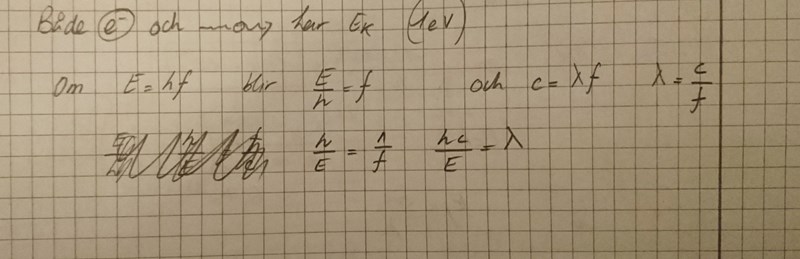 Både e⁻ och har Eₖ (1eV)
Om E = hf blir E/h = f och c = λf λ = c/f
h/E = 1/f hc/E = λ